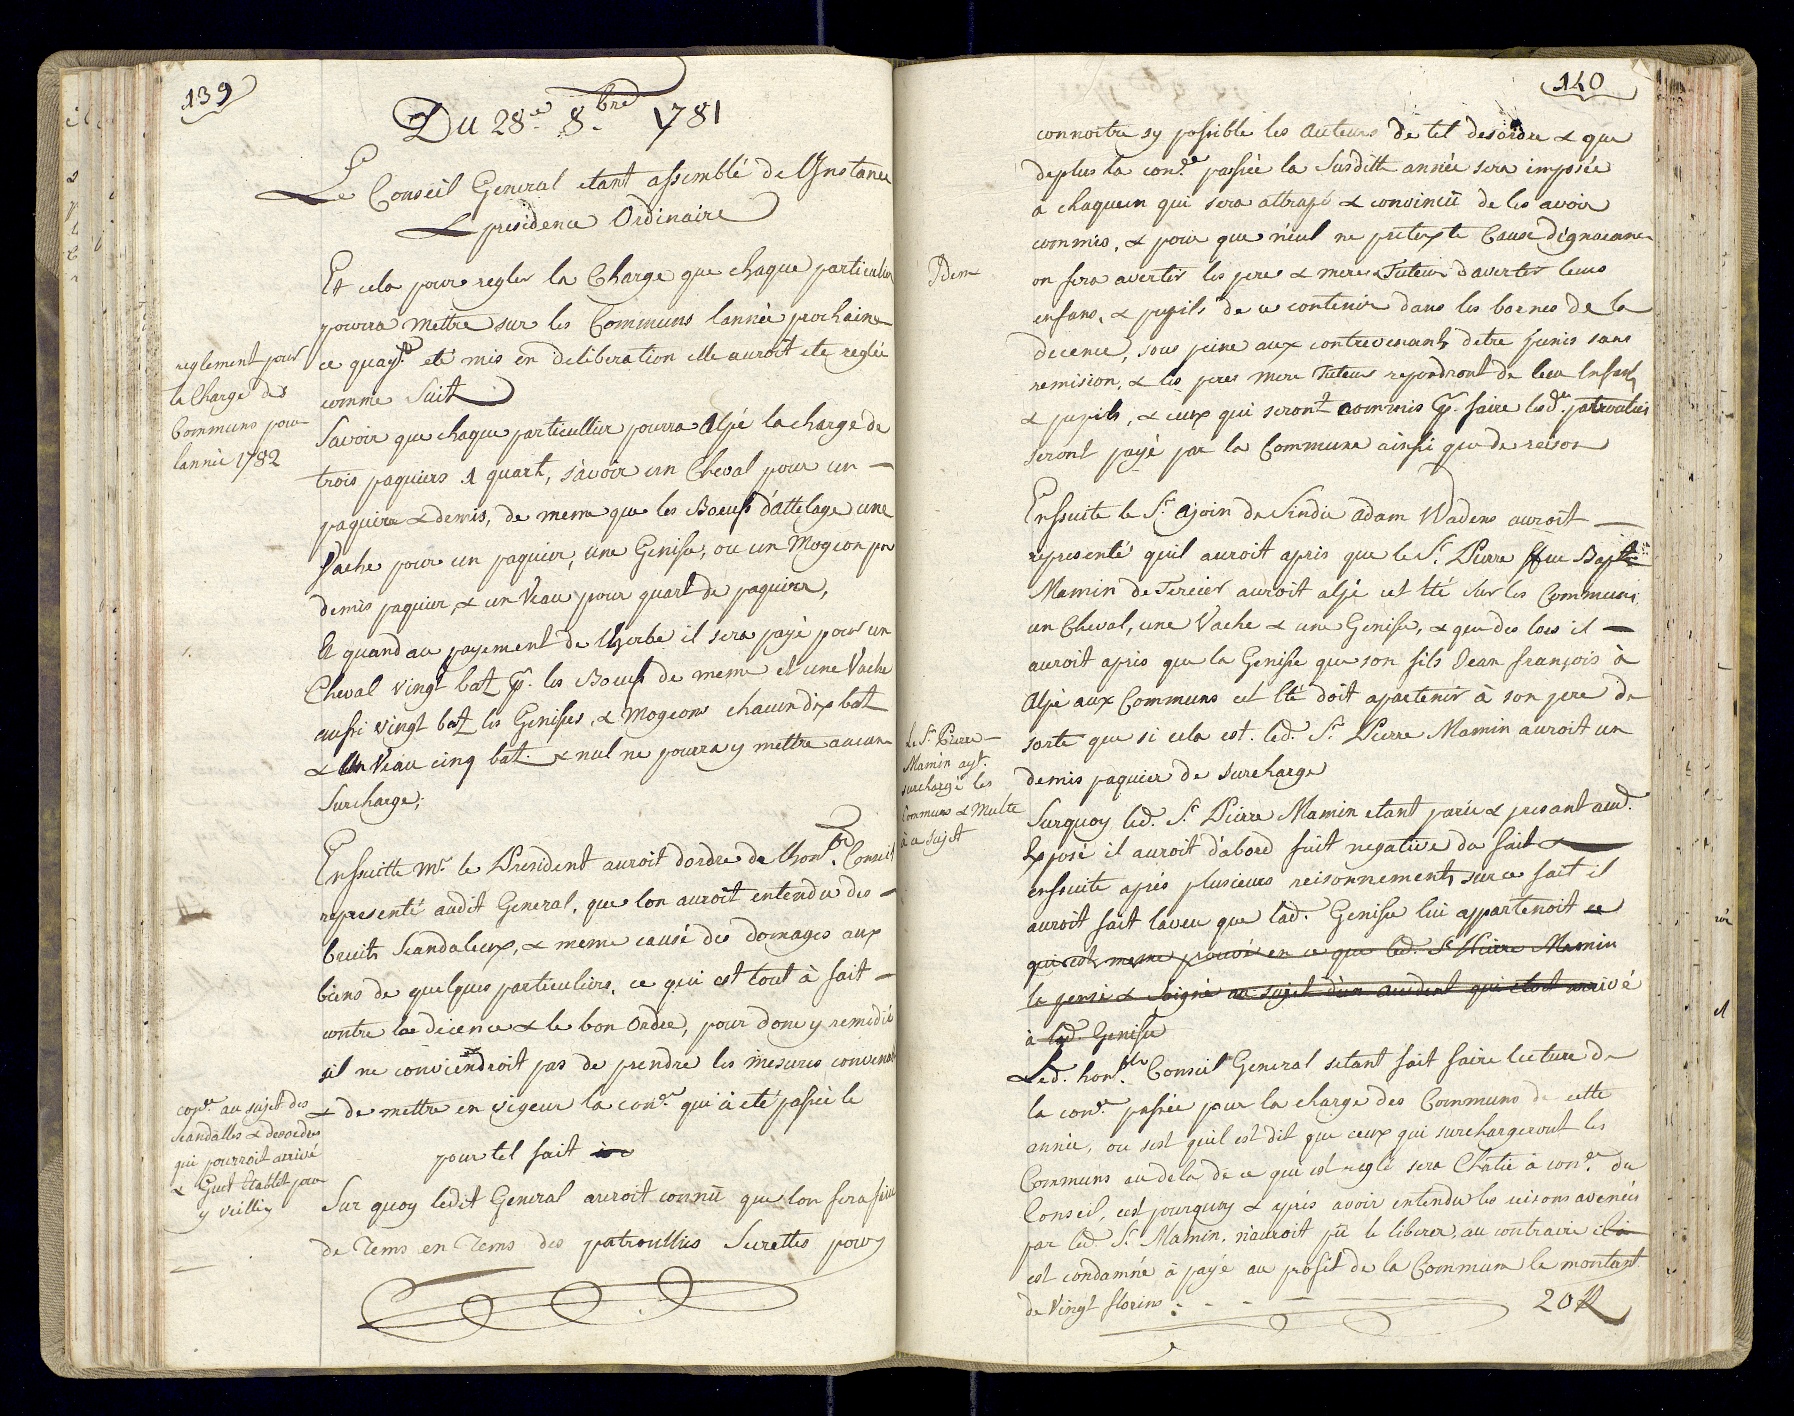 139
Du 28.e 8.bre 1781
Le Conseil General etant assemblé de l'Instance
& presidence Ordinaire
Et cela pour regler la Charge que chaque particulier
pourra mettre sur les Communs lannée prochaine
ce quay.t eté mis en deliberation elle auroit ete reglée
comme Suit
reglement pour
la Charge des
Communs pour
lannée 1782
Savoir que chaque particullier pourra Alpé la charge de
trois paquiers 1 quart, sávoir un Cheval pour un
paquier & demis, de meme que les Boeufs d'attelage une
Vache pour un paquier, une Genise, ou un Mogeon pr
demis paquier, & un Veau pour quart de paquier,
& quand au payement de lherbe il sera payé pour un
Cheval vingt batz pr. les Boeufs de meme et une Vache
aussi vingt batz les Genises, & Mogeons chacun dix batz
& Un Veau cinq bat. & nul ne pourra y mettre aucune
Surcharge;
Ensuitte Mr. le President auroit dordre de lhon.ble Conseil
representé audit General, que lon auroit entendu des
bruits Scandaleux, & meme causé des domages aux
biens de quelques particuliers, ce qui est tout à fait
contre la decence & le bon Ordre, pour donc y remedié
sil ne conviendroit pas de prendre les mesures convenab
& de mettre en vigeur la con.ce qui à eté passée le
pour tel fait
con.ce au sujet des
scandalles & desordres
qui pourroit arrivé
& Guet Etablit pour
y veillé
Sur quoy ledit General auroit connû que lon fera faire
de Tems en Tems des patroullies Secrettes pour
140
connoitre sy possible les Auteurs de tel desordre & que
deplus la con.ce passée la Susditte année sera imposée
a chaquun qui sera attrapé & convincû de les avoir
commis, & pour que neul ne pretexte Cause d'ignorance
Idem
on fera avertir les peres & meres & Tuteurs d'avertir leurs
enfans, & pupils de ce contenir dans les bornes de la
decence, sous peine aux contrevenants detre punis sans
remision, & les peres mere Tuteurs repondront de leur Enfants
& pupils, & ceux qui seront commis pr. faire lesd.e patroulies
seront payé par la Commune ainsi que de reison
Ensuite le Sr. Ajoin de Sindic adam Wadens auroit
representé quil auroit apris que le Sr. Pierre ffeu Bapt.te
Mamin de Tercier auroit alpé cet Eté sur les Communs
un Cheval, une Vache & une Genise, & que des lors il
auroit apris que la Genise que son fils Jean françois à
Alpé aux Communs cet Eté doit apartenir à son pere de
sorte que si cela est. led. Sr. Pierre Mamin auroit un
demis paquier de surcharge
Le Sr. Pierre
Mamin ayt.
surchargé les
Communs & Multe
à ce sujet
Surquoy led. Sr. Pierre Mamin etant parû & presant aud.
Exposé il auroit d'abord fait negative du fait &
ensuite aprés plusieurs reisonnements sur ce fait il
auroit fait laveu que lad. Genise lui appartenoit ce
qui est meme prouvé en ce que led. Sr Pierre Mamin
la pensé & soigné au sujet d'un accident qui etoit arrivé
à lad. Genise
Led. hon.ble Conseil General setant fait faire lecture de
la con.ce passée pour la charge des Communs de cette
année, ou sest quil est dit que ceux qui surchargeront les
Communs au dela de ce qui est reglé sera Chatié à con.ce du
Conseil, cest pourquoy & aprés avoir entendu les reisons avencés
par led. Sr. Mamin, n'auroit pû le liberer, au contraire il à
est condamné à payé au profit de la Commune le montant
de Vingt florins : 20 fl